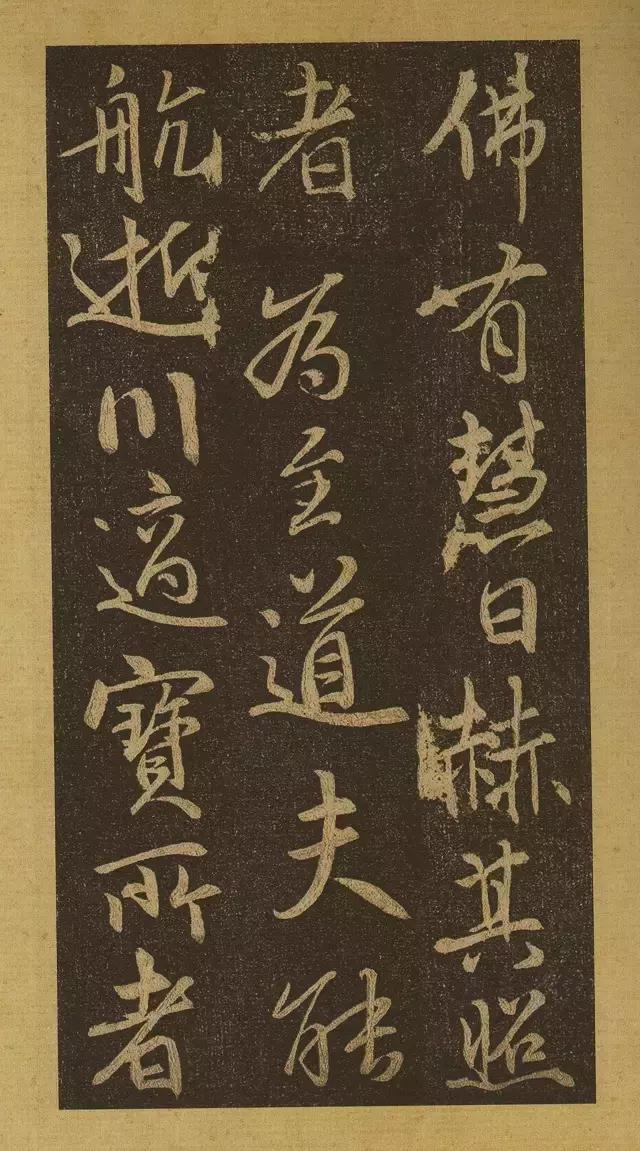 佛有慧日赫其照
者為主道夫能
航逝川適寶所者